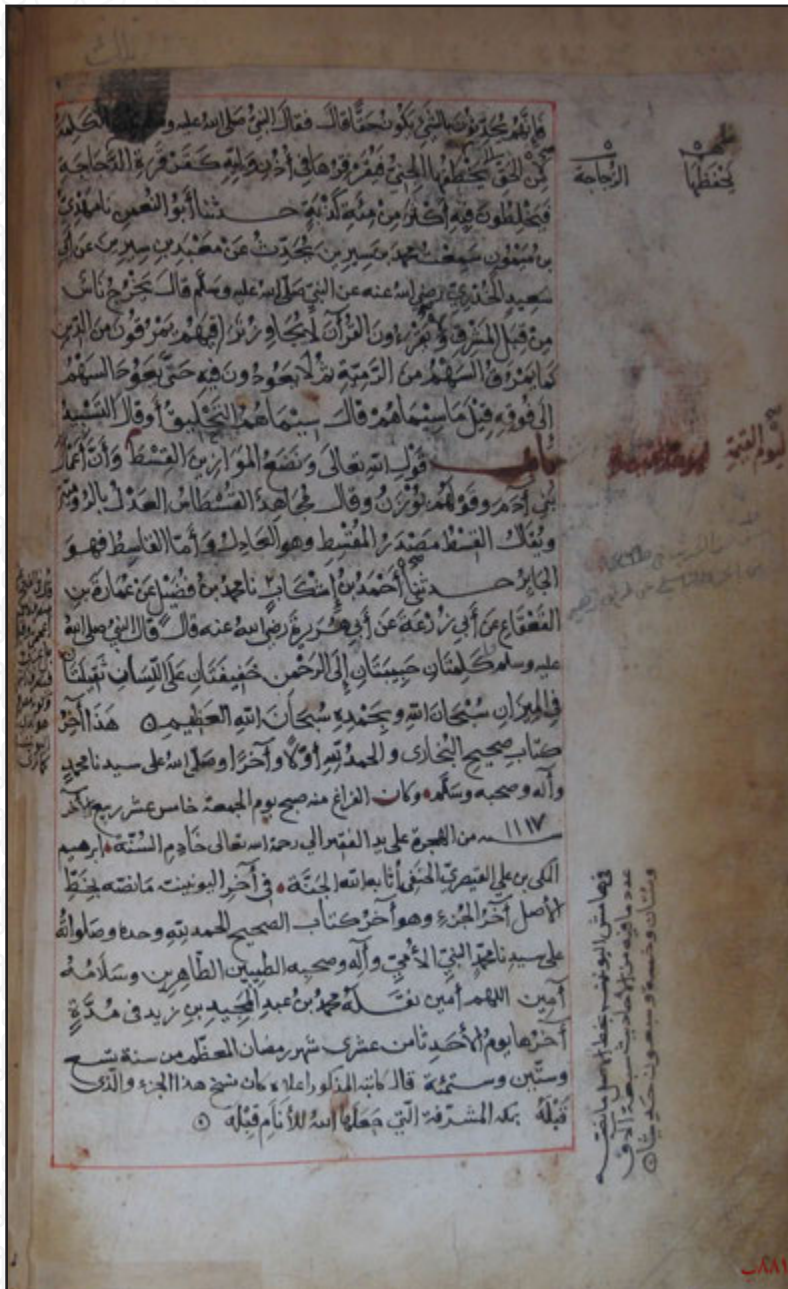 فإنهم يحدثون بالشيء يكون حقا قال فقال النبي صلى الله عليه وسلم تلك الكلمة
من الحق يخطفها الجني فيقرقرها في أذن وليه كقرقرة الدجاجة
فيخلطون فيه أكثر من مئة كذبة حدثنا أبو النعمن نا مهدي
بن ميمون سمعت محمد بن سيرين يحدث عن معبد بن سيرين عن أبي
سعيد الخدري رضي الله عنه عن النبي صلى الله عليه وسلم قال يخرج ناس
من قبل المشرق ويقرءون القرآن لا يجاوز تراقيهم يمرقون من الدين
كما يمرق السهم من الرمية ثم لا يعودون فيه حتى يعود السهم
إلى فوقه قيل ما سيماهم قال سيماهم التحليق أو قال التسبيد
باب قول الله تعالى ونضع الموازين القسط وأن أعمال
بني آدم وقولهم يوزن وقال مجاهد القسطاس العدل بالرومية
ويقال القسط مصدر المقسط وهو العادل وأما القاسط فهو
الجاير حدثني أحمد بن إشكاب نا محمد بن فضيل عن عمارة بن
القعقاع عن أبي زرعة عن أبي هريرة رضي الله عنه قال قال النبي صلى الله
عليه وسلم كلمتان حبيبتان إلى الرحمن خفيفتان على اللسان ثقيلتان
في الميزان سبحان الله وبحمده سبحان الله العظيم هذا آخر
كتاب صحيح البخاري والحمد لله أولا وآخرا وصلى الله على سيدنا محمد
وآله وصحبه وسلم وكان الفراغ منه صبح يوم الجمعة خامس عشر ربيع آخر
سنة ١١١٧ من الهجرة على يد الفقير إلى رحمة الله تعالى خادم السنة ابرهيم
المكي بن علي القيصري الحنفي أثابه الله الجنة في آخر اليونينية ما نصه بخط
الأصل آخر الجزء وهو آخر كتاب الصحيح الحمد لله وحده وصلواته
على سيدنا محمد النبي الأمي وآله وصحبه الطيبين الطاهرين وسلامه
آمين اللهم آمين نقله محمد بن عبد المجيد بن زيد في مدة
آخرها يوم الأحد ثامن عشري شهر رمضان المعظم من سنة تسع
وستين وستمئة قال كاتبه المذكور أعلاه كان نسخ هذا الجزء والذي
قبله بمكة المشرفة التي جعلها الله للأنام قبلة
يحفظها
الزجاجة
ليوم القيمة
في هامش اليونينية بخط الأصل ما نصه
عدد ما فيه من الأحاديث سبعة آلاف
ومئتان وخمسة وسبعون حديثا
٨٨١ب